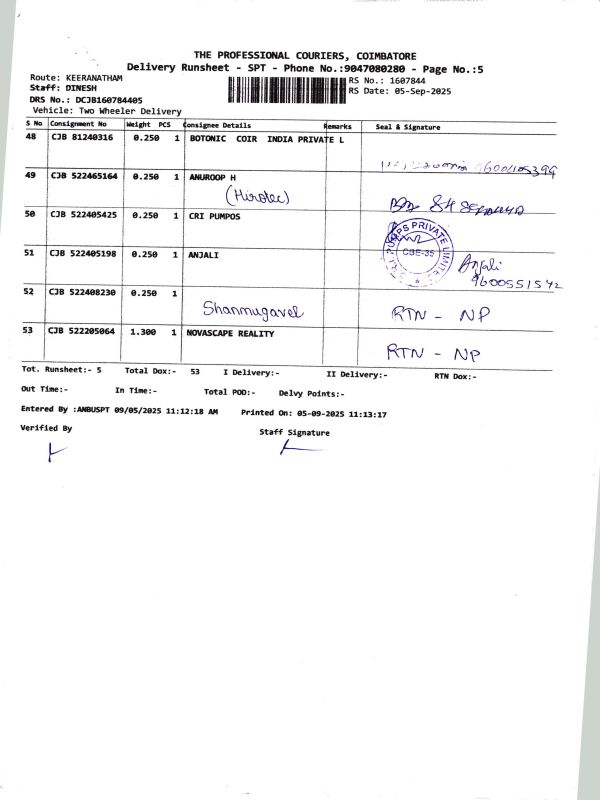 THE PROFESSIONAL COURIERS, COIMBATORE
Delivery Runsheet - SPT - Phone No.:9047080280 - Page No.:5
Route: KEERANATHAM RS No.: 1607844
Staff: DINESH RS Date: 05-Sep-2025
DRS No.: DCJB160784405
Vehicle: Two Wheeler Delivery
S No Consignment No Weight PCS Consignee Details Remarks Seal & Signature
48 CJB 81240316 0.250 1 BOTONIC COIR INDIA PRIVATE L
49 CJB 522465164 0.250 1 ANUROOP H
(Hirotec)
50 CJB 522405425 0.250 1 CRI PUMPOS
PUMPS PRIVATE LIMITED
CBE-35
51 CJB 522405198 0.250 1 ANJALI Anjali
9600551542
52 CJB 522408230 0.250 1
Shanmugavel RTN - NP
53 CJB 522205064 1.300 1 NOVASCAPE REALITY
RTN - NP
Tot. Runsheet:- 5 Total Dox:- 53 I Delivery:- II Delivery:- RTN Dox:-
Out Time:- In Time:- Total POD:- Delvy Points:-
Entered By :ANBUSPT 09/05/2025 11:12:18 AM Printed On: 05-09-2025 11:13:17
Verified By Staff Signature